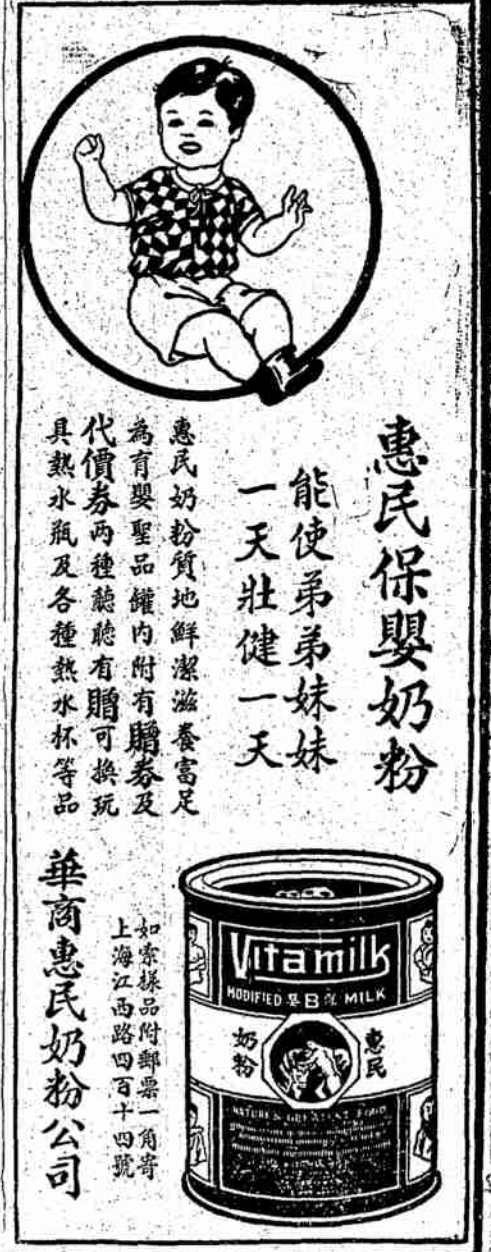 惠民保嬰奶粉
能使弟弟妹妹
一天壯健一天
惠民奶粉質地鮮潔滋養富足
為育嬰聖品罐内附有贈券及
代價券两種聽聽有贈可換玩
具熱水瓶及各種熱水杯等品
Vitamilk
MODIFIED 第B號 MILK
惠民
奶粉
NATURE'S GREATEST FOOD
如索樣品附郵票一角寄
上海江西路四百十四號
華商惠民奶粉公司